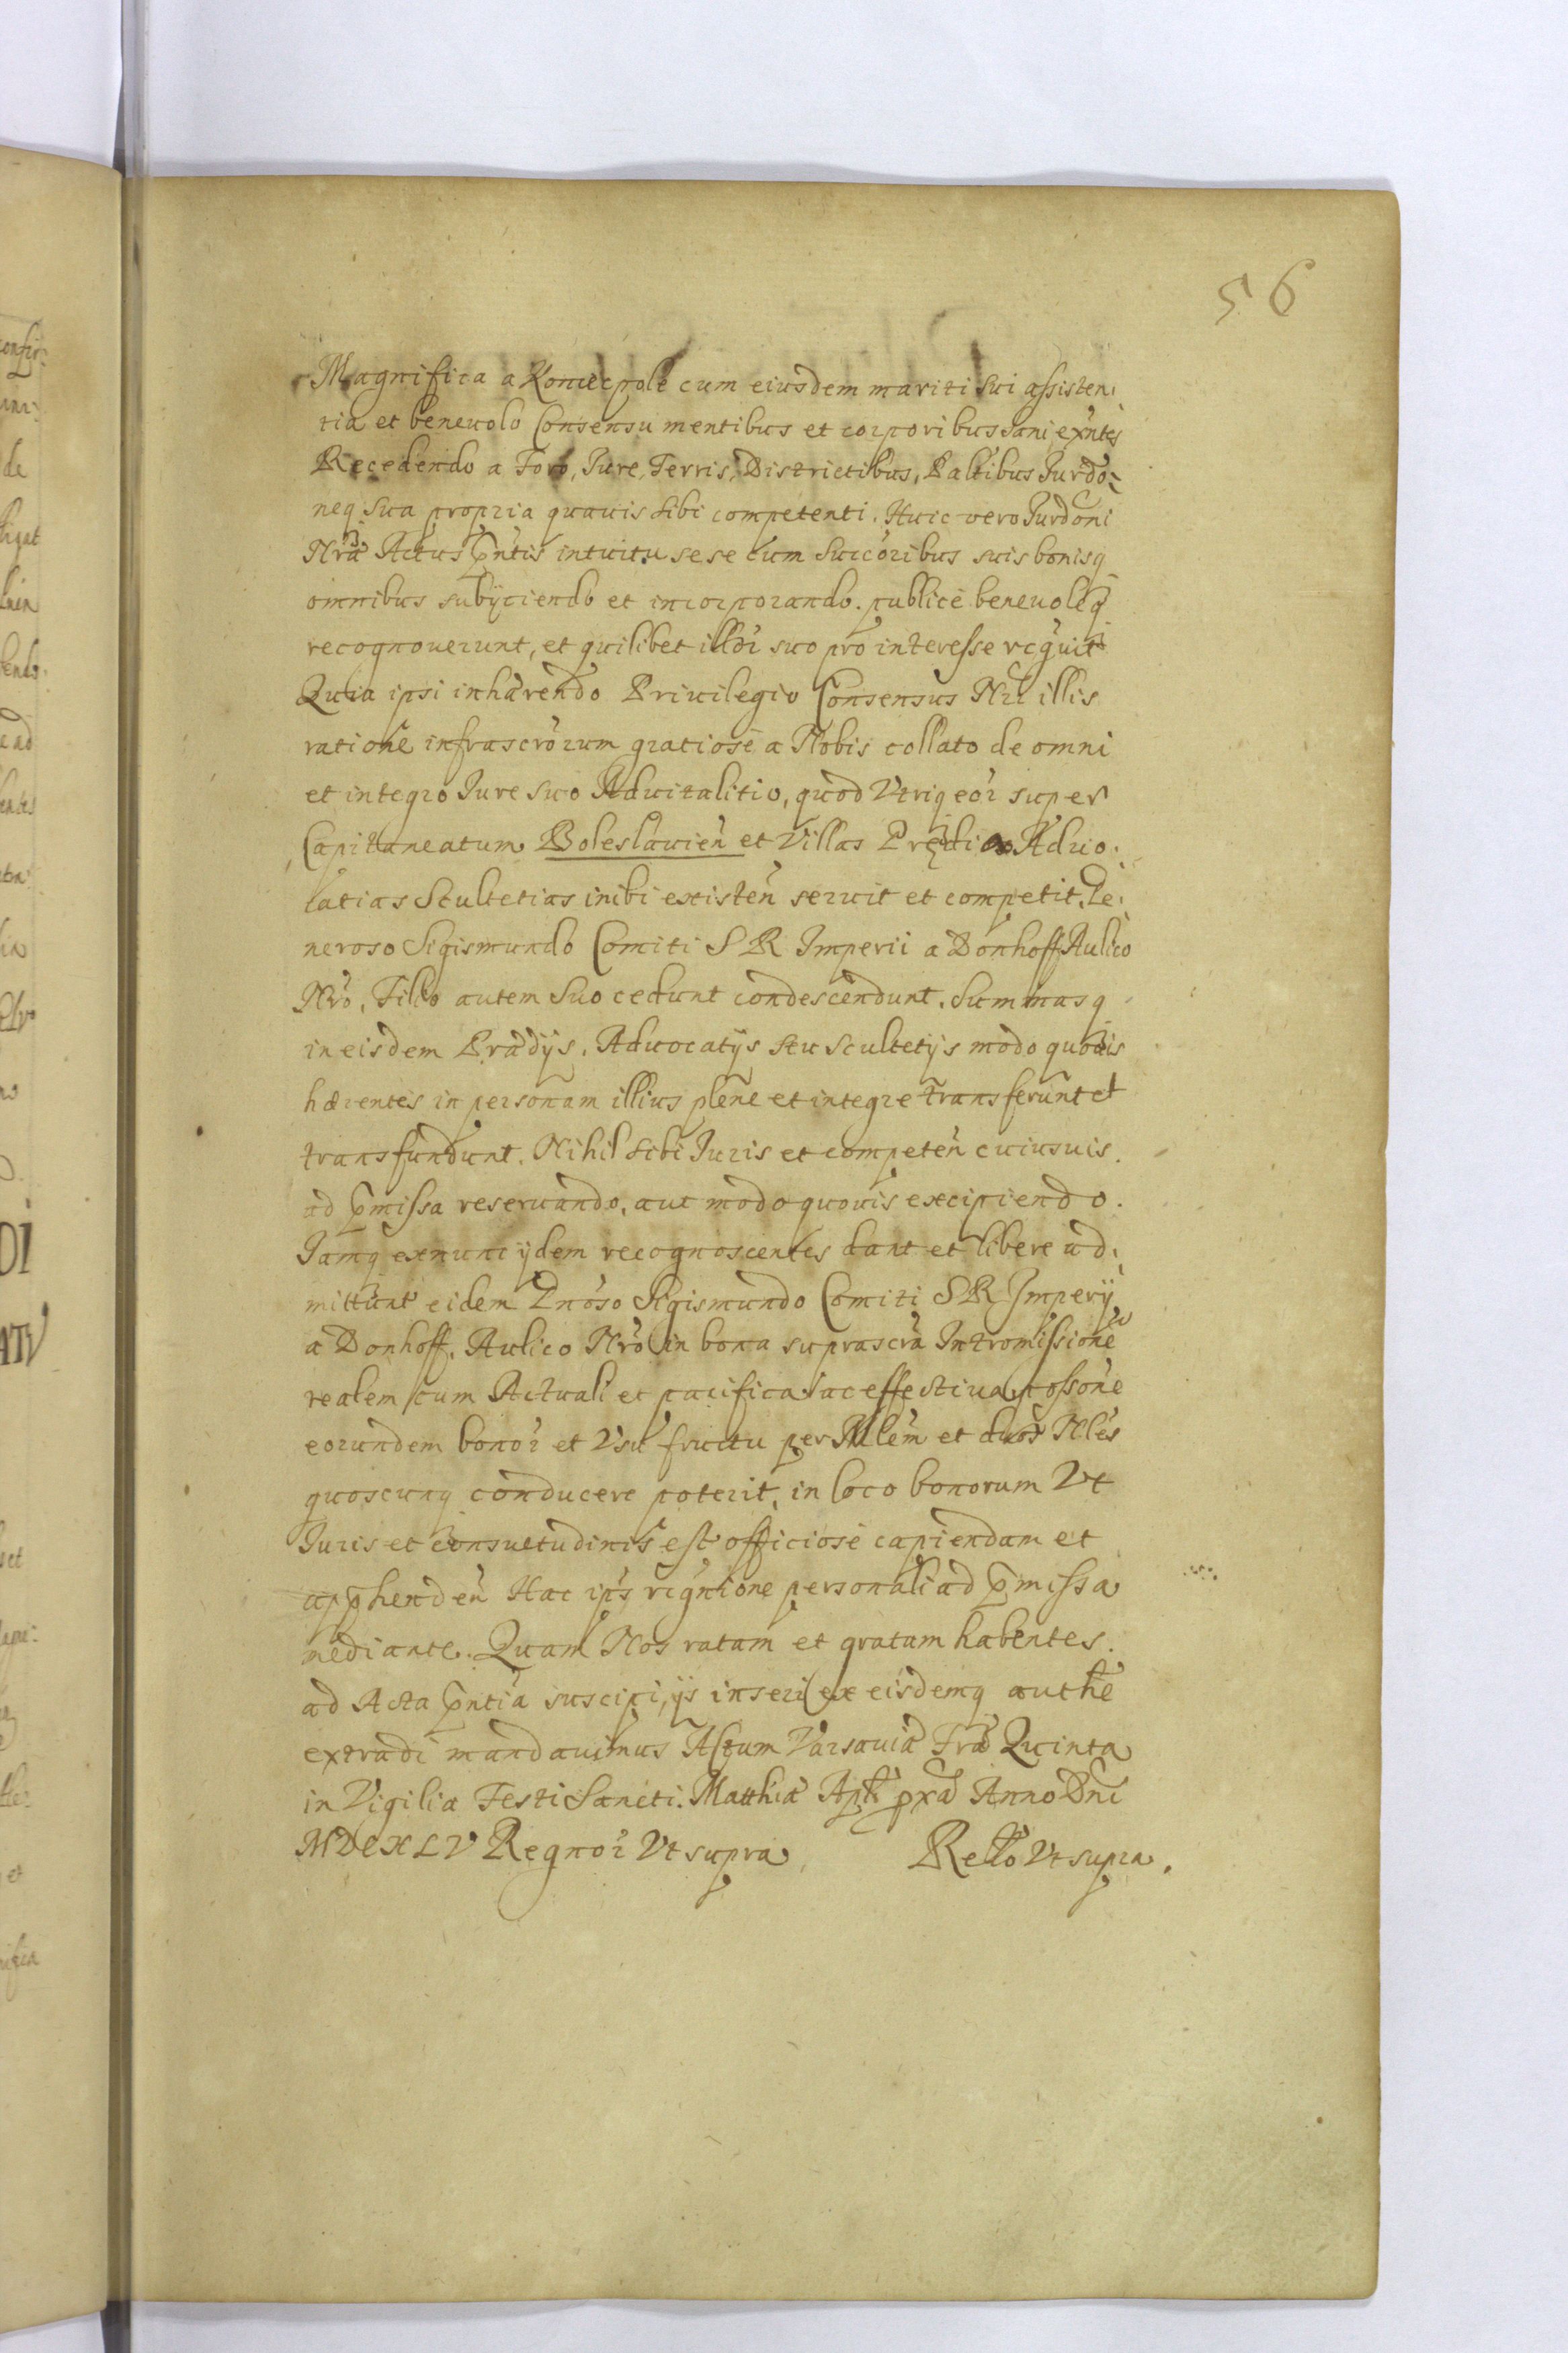 56
Magnifica a Koniecpole cum eiusdem mariti sui assisten:
tia et beneuolo Consensu mentibus et corporibus sani exñtes
Recedendo a Foro, Iure, Terris, Districtibus, Paltibus Iurdo:
neq sua propria quauis sibi competenti. Huic vero Iurdoni
Nrã Actus p̃ntis intuitu sese cum Succoribus suis bonisq
omnibus subÿciendo et incorporando. publicè beneuoleq̃
recognouerunt, et quilibet illor̃ suo pro interesse rcguit
Quia ipsi inhærendo Priuilegio Consensus Nri illis
ratione infrascrõrum gratiosè a Nobis collato de omni
et integro Iure suo Aduitalitio, quod Vtriq eor̃ super
Capitaneatum Boleslauieñ et Villas Prędia Aduo:
catias Scultetias inibi existeñ seruit et competit. Ge:
neroso Sigismundo Comiti S R Imperii a Donhoff Aulico
Nrõ, Filio autem suo cedunt condescendunt. Summasq
in eisdem Prædijs, Aduocatijs seu Scultetijs modo quouis
hærentes in personam illius plene et integre transferunt et
transfundunt. Nihil sibi Iuris et competeñ cuiusuis.
ad p̃missa reseruando, aut modo quouis excipiendo.
Iamq exnunc ijdem recognoscentes dant et libere ad:
mittunt eidem Gnõso Sigismundo Comiti S R Imperij
a Donhoff. Aulico Nrõ in bona suprascrã Intromissionẽ
realem cum Actuali et pacifica ac effectiua possõne
eorundem bonor̃ et Vsu fructu per Mlem̃ et duos Nles
quoscunq conducere poterit, in loco bonorum Vt
Iuris et consuetudinis est officiosè capiendam et
app̃hendeñ Hac ip̃s rcgntione personali ad p̃missa
mediante. Quam Nos ratam et gratam habentes.
ad Acta p̃ntia suscipi, ijs inseri ex eisdemq authẽ
extradi mandauimus Actum Varsauiæ Frã Quinta
in Vigilia Festi Sancti Matthiæ Apli pxã Anno Dni
MDCXLV Regnor̃ Vt supra Rello Vt supra.